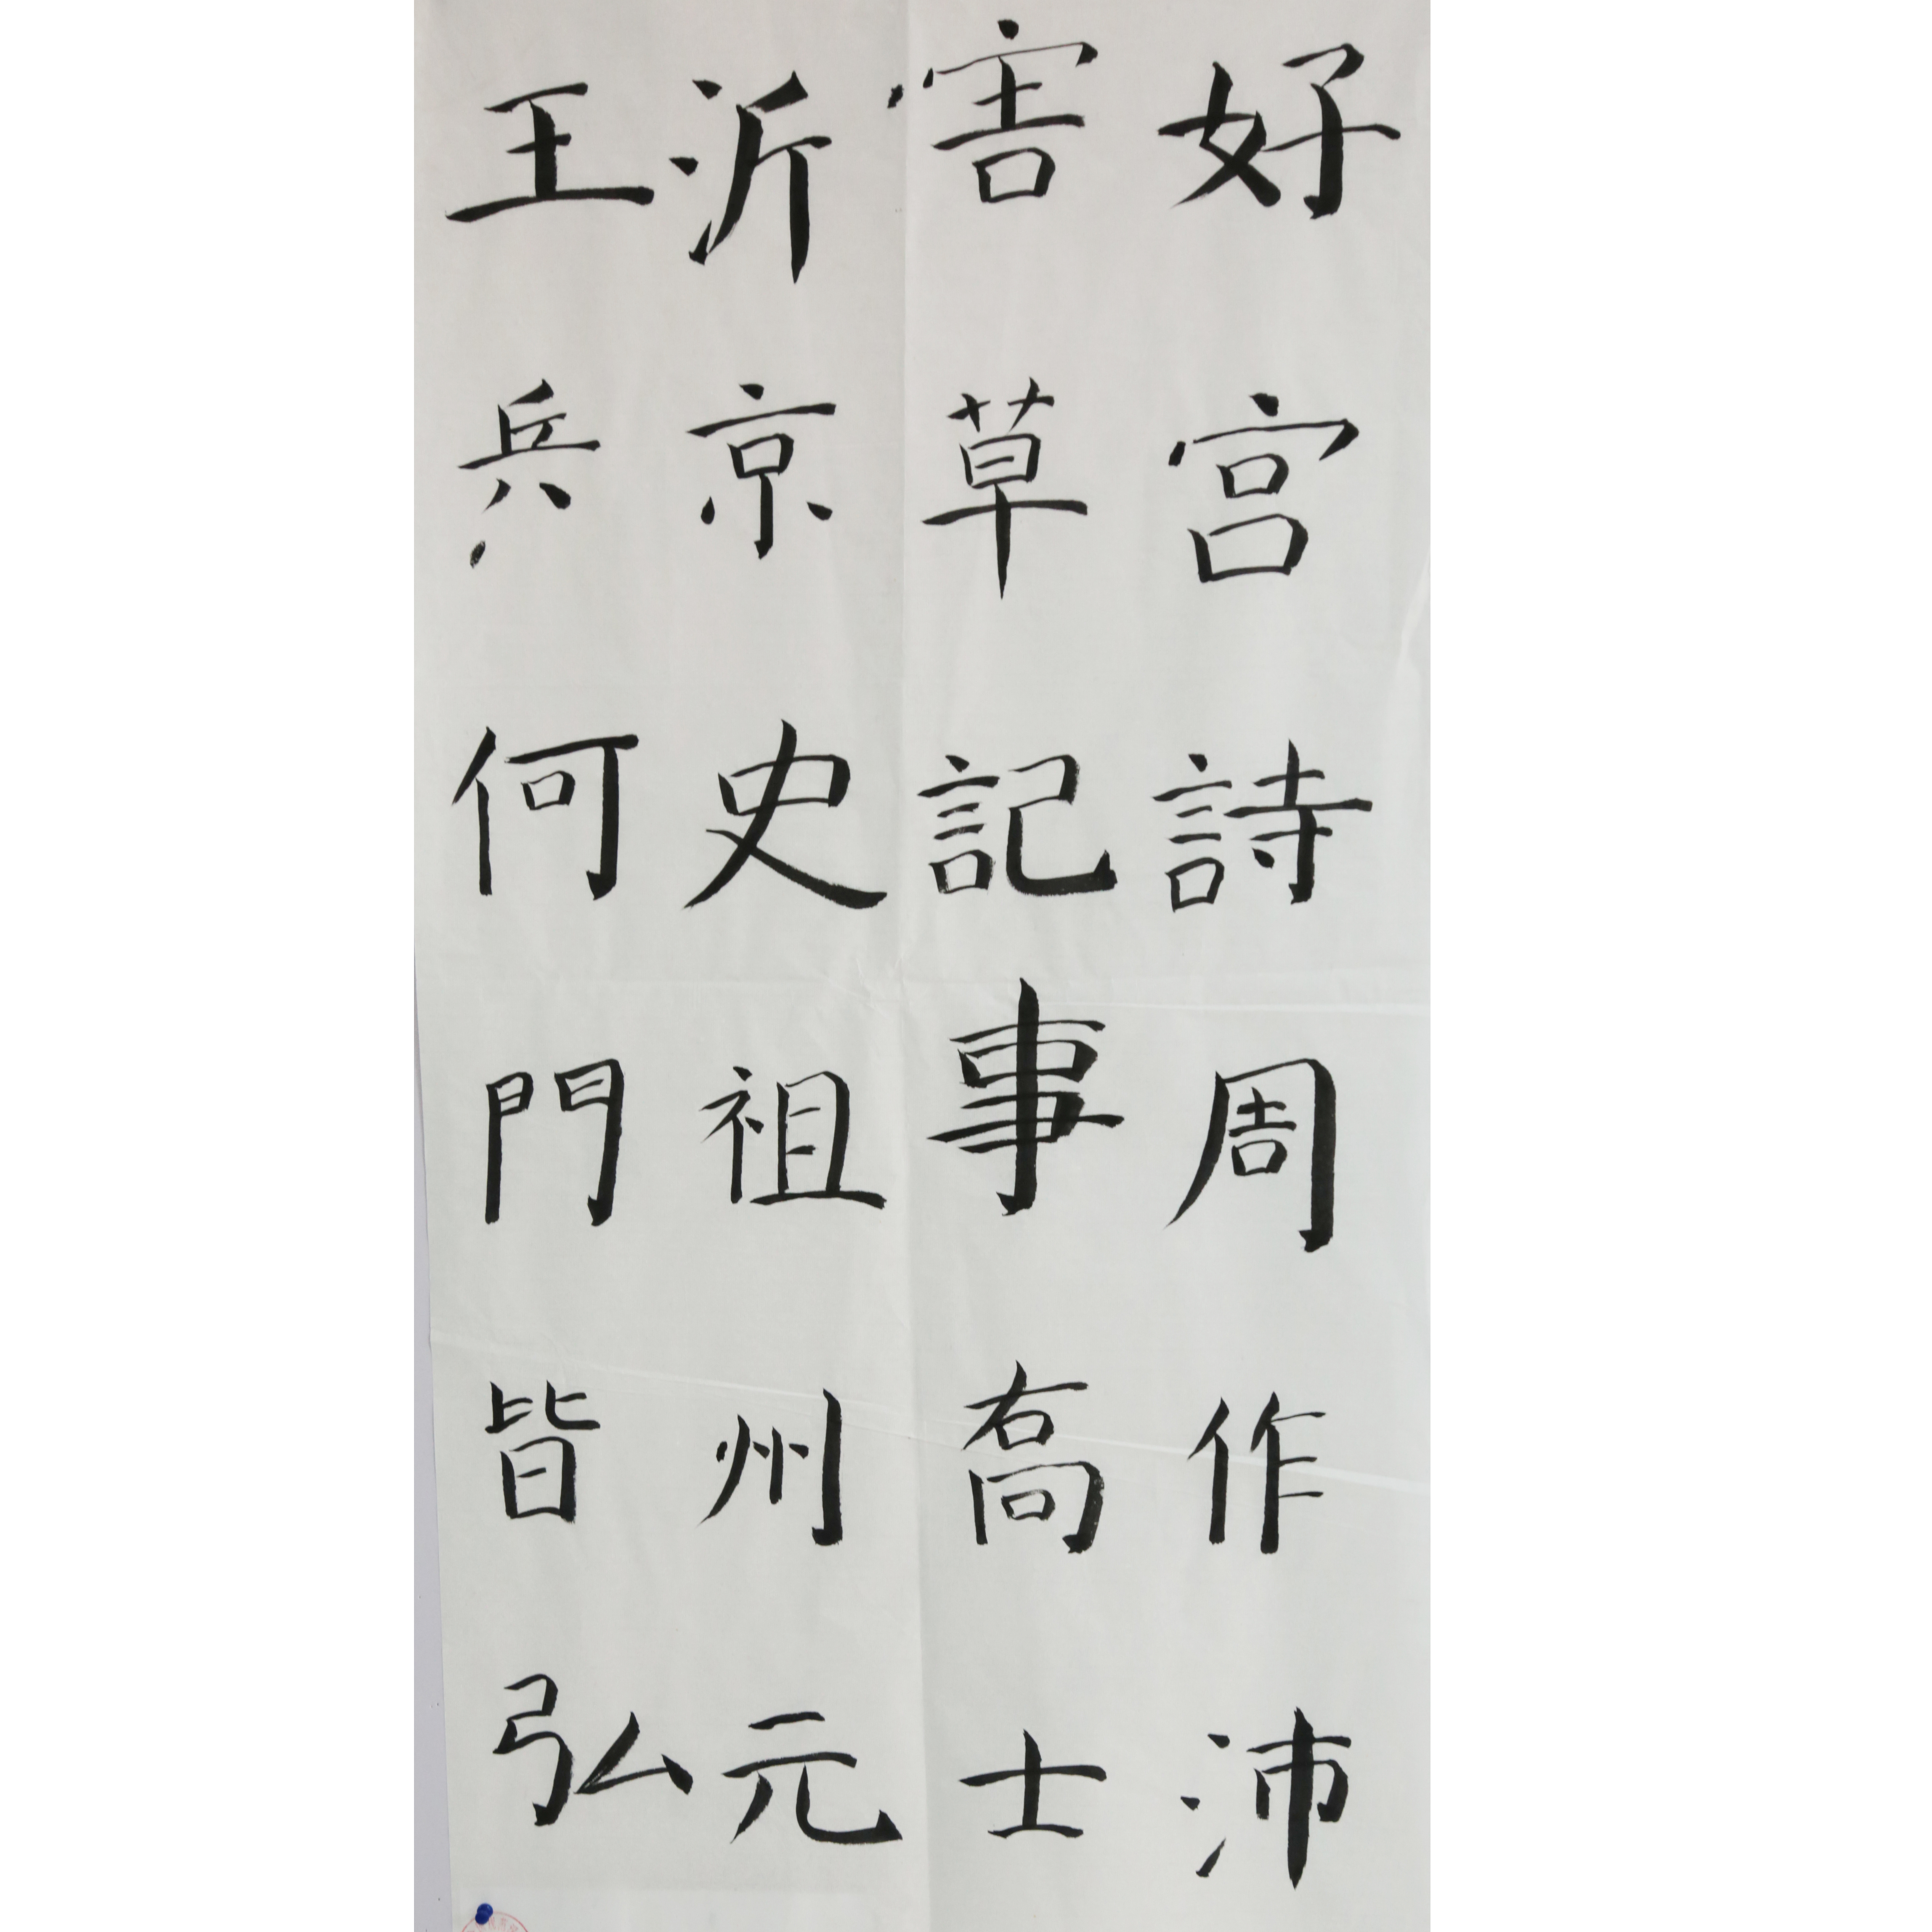 好宫詩周作沛
害草記事喬士
沂京史祖州元
王兵何門皆弘